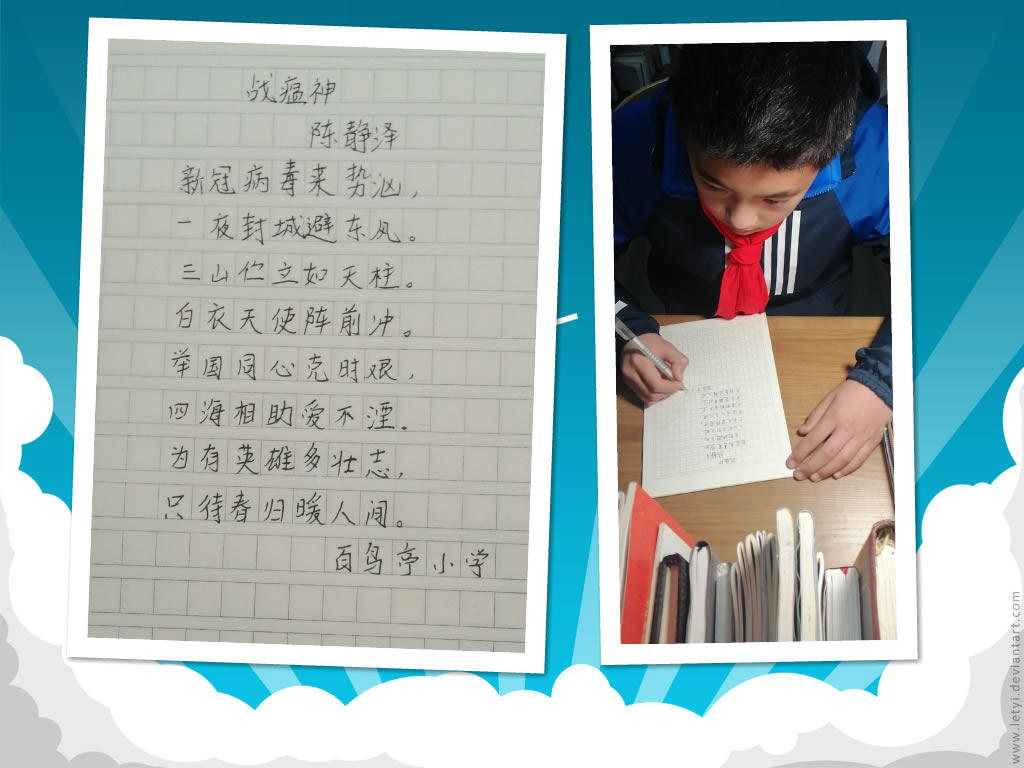 战瘟神
陈静泽
新冠病毒来势汹,
一夜封城避东风。
三山伫立如天柱。
白衣天使阵前冲。
举国同心克时艰,
四海相助爱不湮.
为有英雄多壮志,
只待春归暖人间。
百鸟亭小学
www.letyi.deviantart.com